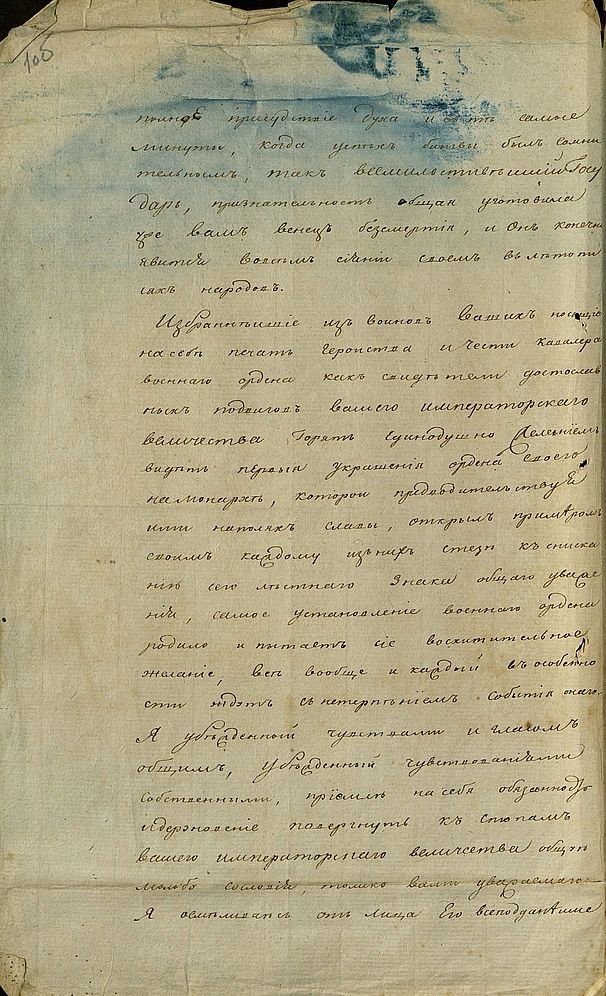 105
полное присудствіе духа и въ самые
минуты, когда успѣхъ битвы былъ сомни
тельнымъ, такъ всемилостивѣйшій Госу
дарь, признательность общая уготовила
уже вамъ венецъ безсмертія, и онъ конечно
явится во всемъ сіяніи своемъ въ лѣтопи
сяхъ народовъ.
Избраннѣйшіе изъ воиновъ Вашихъ носящіе
на себѣ печать Героиства и чести кавалера
военнаго ордена какъ свидѣтели достослав
ныхъ подвигодъ вашего императорскаго
величества горятъ единодушно желеніемъ
видѣть первыя украшенія ордена своего
на монархѣ, которои предводительствуе
ими на поляхъ славы, открылъ примѣромъ
своимъ каждому изъ нихъ стезю къ сниска
нію сего лѣстнаго знака общаго уваже
нія, самое установленіе военнаго ордена
родило и питаетъ сіе восхитительное
желаніе, всѣ вообще и каждый въ особенно
сти ждэтъ съ нетерпѣніемъ событія онаго.
Я убѣжденный чувствами и гласомъ
общимъ, убѣжденный чувствованіями
собственными, пріемлю на себя обязанность
и дерзновеніе повергнуть къ стопамъ
вашего императорскаго величества общую
мольбу сословія, толико вами уважаемаго.
Я осмѣливаюсь отъ лица Его всеподданѣише